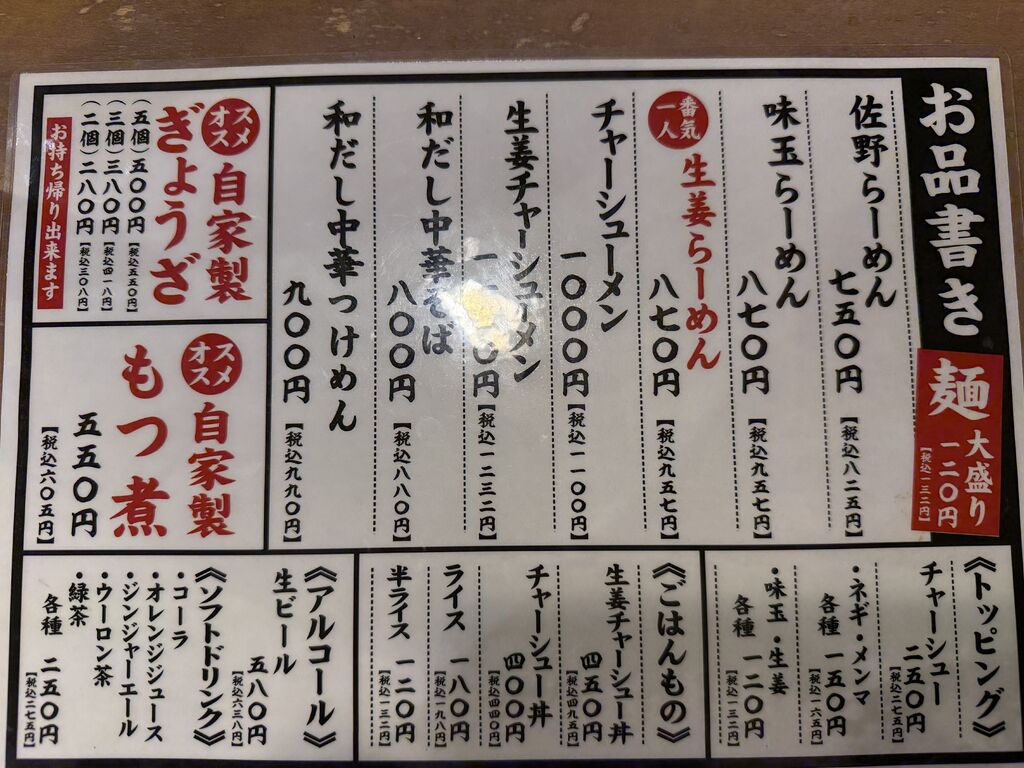 お品書き
麺大盛り
一二〇円
【税込一三二円】
佐野らーめん
七五〇円
【税込八二五円】
味玉らーめん
八七〇円
【税込九五七円】
一番人気
生姜らーめん
八七〇円
【税込九五七円】
チャーシューメン
一〇〇〇円
【税込一一〇〇円】
生姜チャーシューメン
【税込一二三二円】
和だし中華そば
八〇〇円
【税込八八〇円】
和だし中華つけめん
九〇〇円
【税込九九〇円】
オススメ
自家製
ぎょうざ
(五個)五〇〇円【税込五五〇円】
(三個)三八〇円【税込四一八円】
(二個)二八〇円【税込三〇八円】
お持ち帰り出来ます
オススメ
自家製
もつ煮
五五〇円
【税込六〇五円】
《トッピング》
チャーシュー
二五〇円
【税込二七五円】
・ネギ・メンマ
各種 一五〇円
【税込一六五円】
・味玉・生姜
各種 一二〇円
【税込一三二円】
《ごはんもの》
生姜チャーシュー丼
四五〇円
【税込四九五円】
チャーシュー丼
四〇〇円
【税込四四〇円】
ライス 一八〇円
【税込一九八円】
半ライス 一二〇円
【税込一三二円】
《アルコール》
生ビール
五八〇円
【税込六三八円】
《ソフトドリンク》
・コーラ
・オレンジジュース
・ジンジャーエール
・ウーロン茶
・緑茶
各種 二五〇円
【税込二七五円】